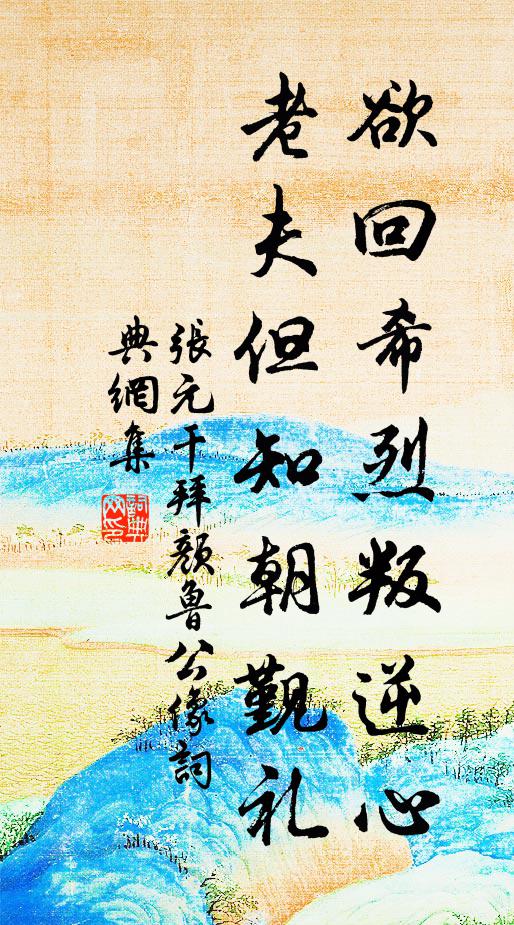 欲回希烈叛逆心
老夫但知朝覲礼
張元干拜顏魯公像詞
典網集
詞典